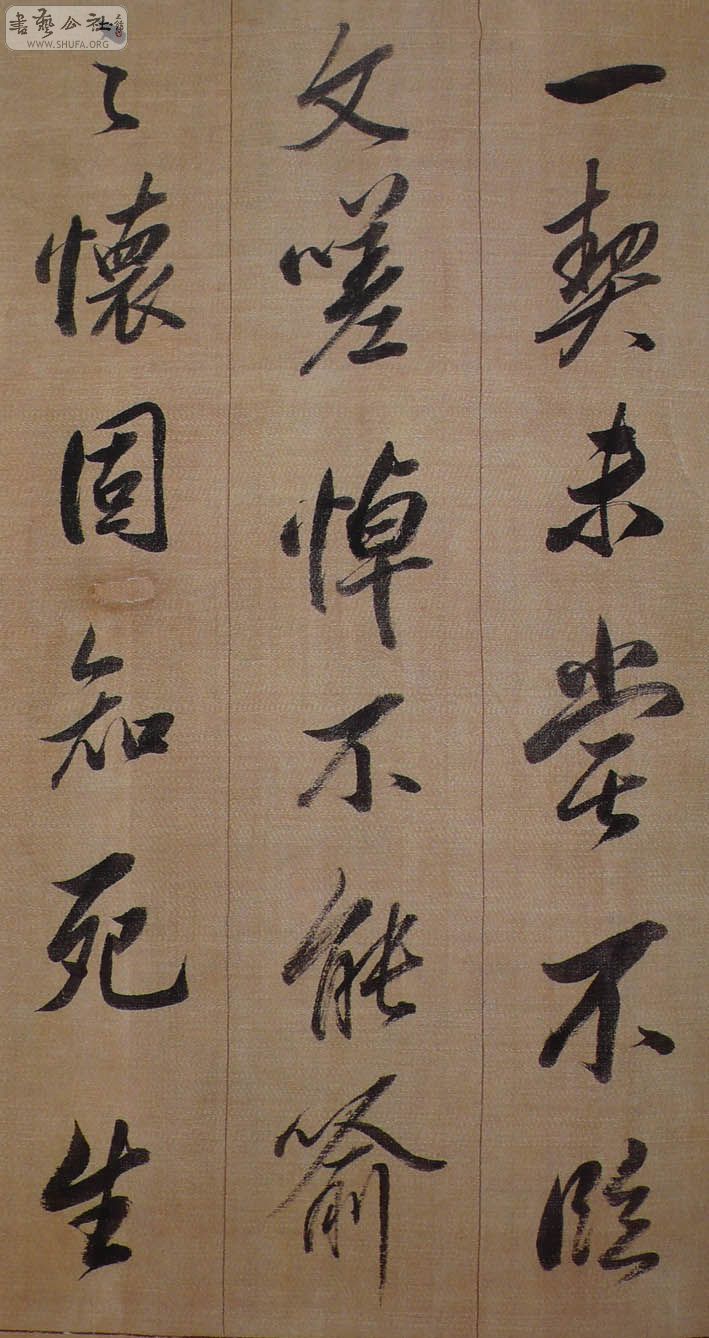 一契未嘗不臨
文嗟悼不能喻
之懷固知死生
書藝公社
WWW.SHUFA.ORG